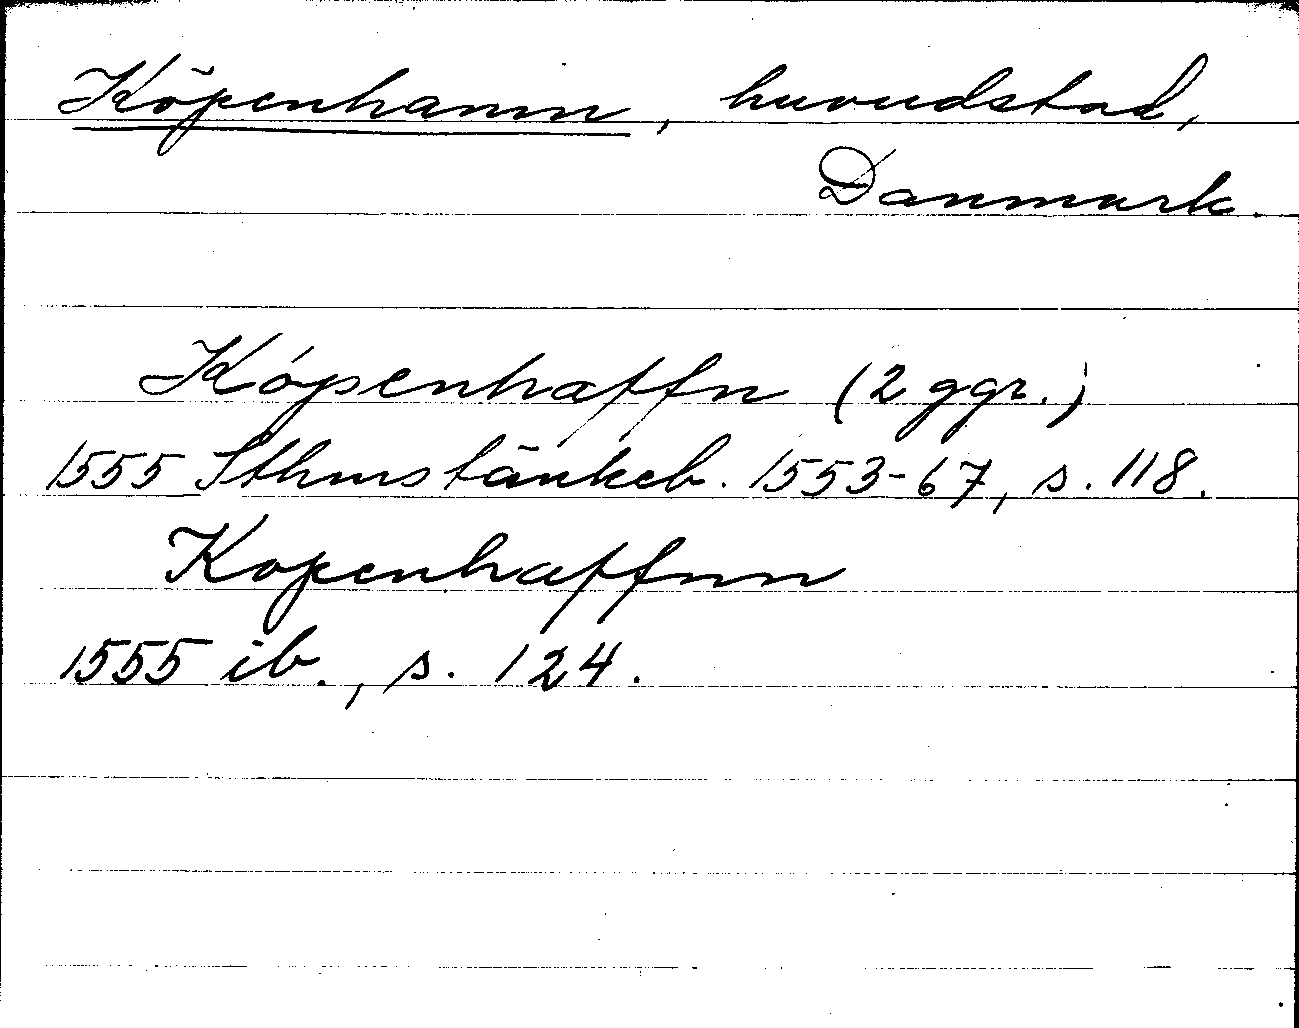 Köpenhamn, huvudstad,
Danmark.
Kópenhaffn (2 ggr.)
1555 Sthms tänkeb. 1553-67, s. 118.
Kopenhaffnn
1555 ib., s. 124.